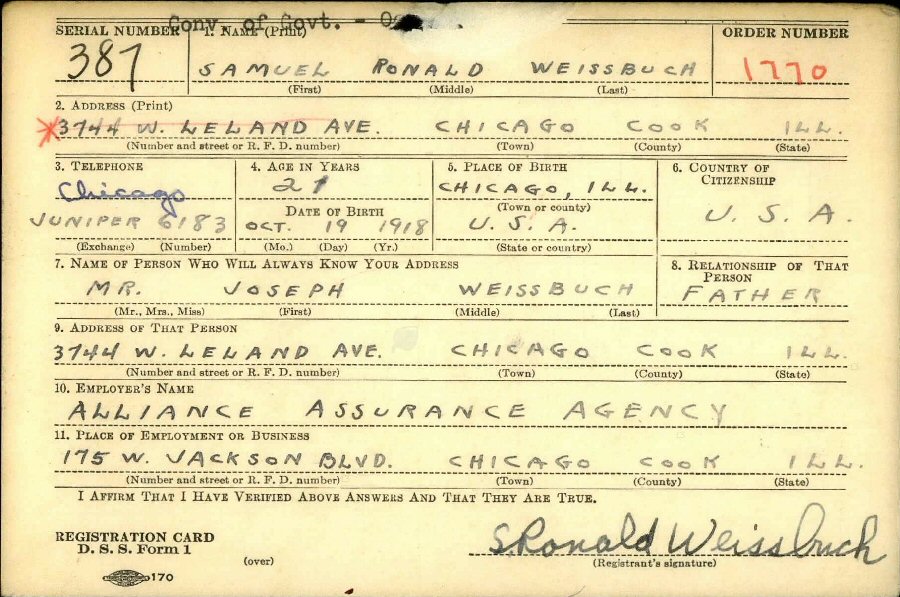 Conv. of Govt. -
SERIAL NUMBER 1. NAME (Print) ORDER NUMBER
387 SAMUEL RONALD WEISSBUCH 1770
(First) (Middle) (Last)
2. ADDRESS (Print)
3744 W. LELAND AVE. CHICAGO COOK ILL.
(Number and street or R. F. D. number) (Town) (County) (State)
3. TELEPHONE 4. AGE IN YEARS 5. PLACE OF BIRTH 6. COUNTRY OF CITIZENSHIP
Chicago 21 CHICAGO, ILL.
DATE OF BIRTH (Town or county)
JUNIPER 6183 OCT. 19 1918 U. S. A. U. S. A.
(Exchange) (Number) (Mo.) (Day) (Yr.) (State or country)
7. NAME OF PERSON WHO WILL ALWAYS KNOW YOUR ADDRESS 8. RELATIONSHIP OF THAT PERSON
MR. JOSEPH WEISSBUCH FATHER
(Mr., Mrs., Miss) (First) (Middle) (Last)
9. ADDRESS OF THAT PERSON
3744 W. LELAND AVE. CHICAGO COOK ILL.
(Number and street or R. F. D. number) (Town) (County) (State)
10. EMPLOYER'S NAME
ALLIANCE ASSURANCE AGENCY
11. PLACE OF EMPLOYMENT OR BUSINESS
175 W. JACKSON BLVD. CHICAGO COOK ILL.
(Number and street or R. F. D. number) (Town) (County) (State)
I AFFIRM THAT I HAVE VERIFIED ABOVE ANSWERS AND THAT THEY ARE TRUE.
REGISTRATION CARD
D. S. S. Form 1 S. Ronald Weissbuch
(over) (Registrant's signature)
170